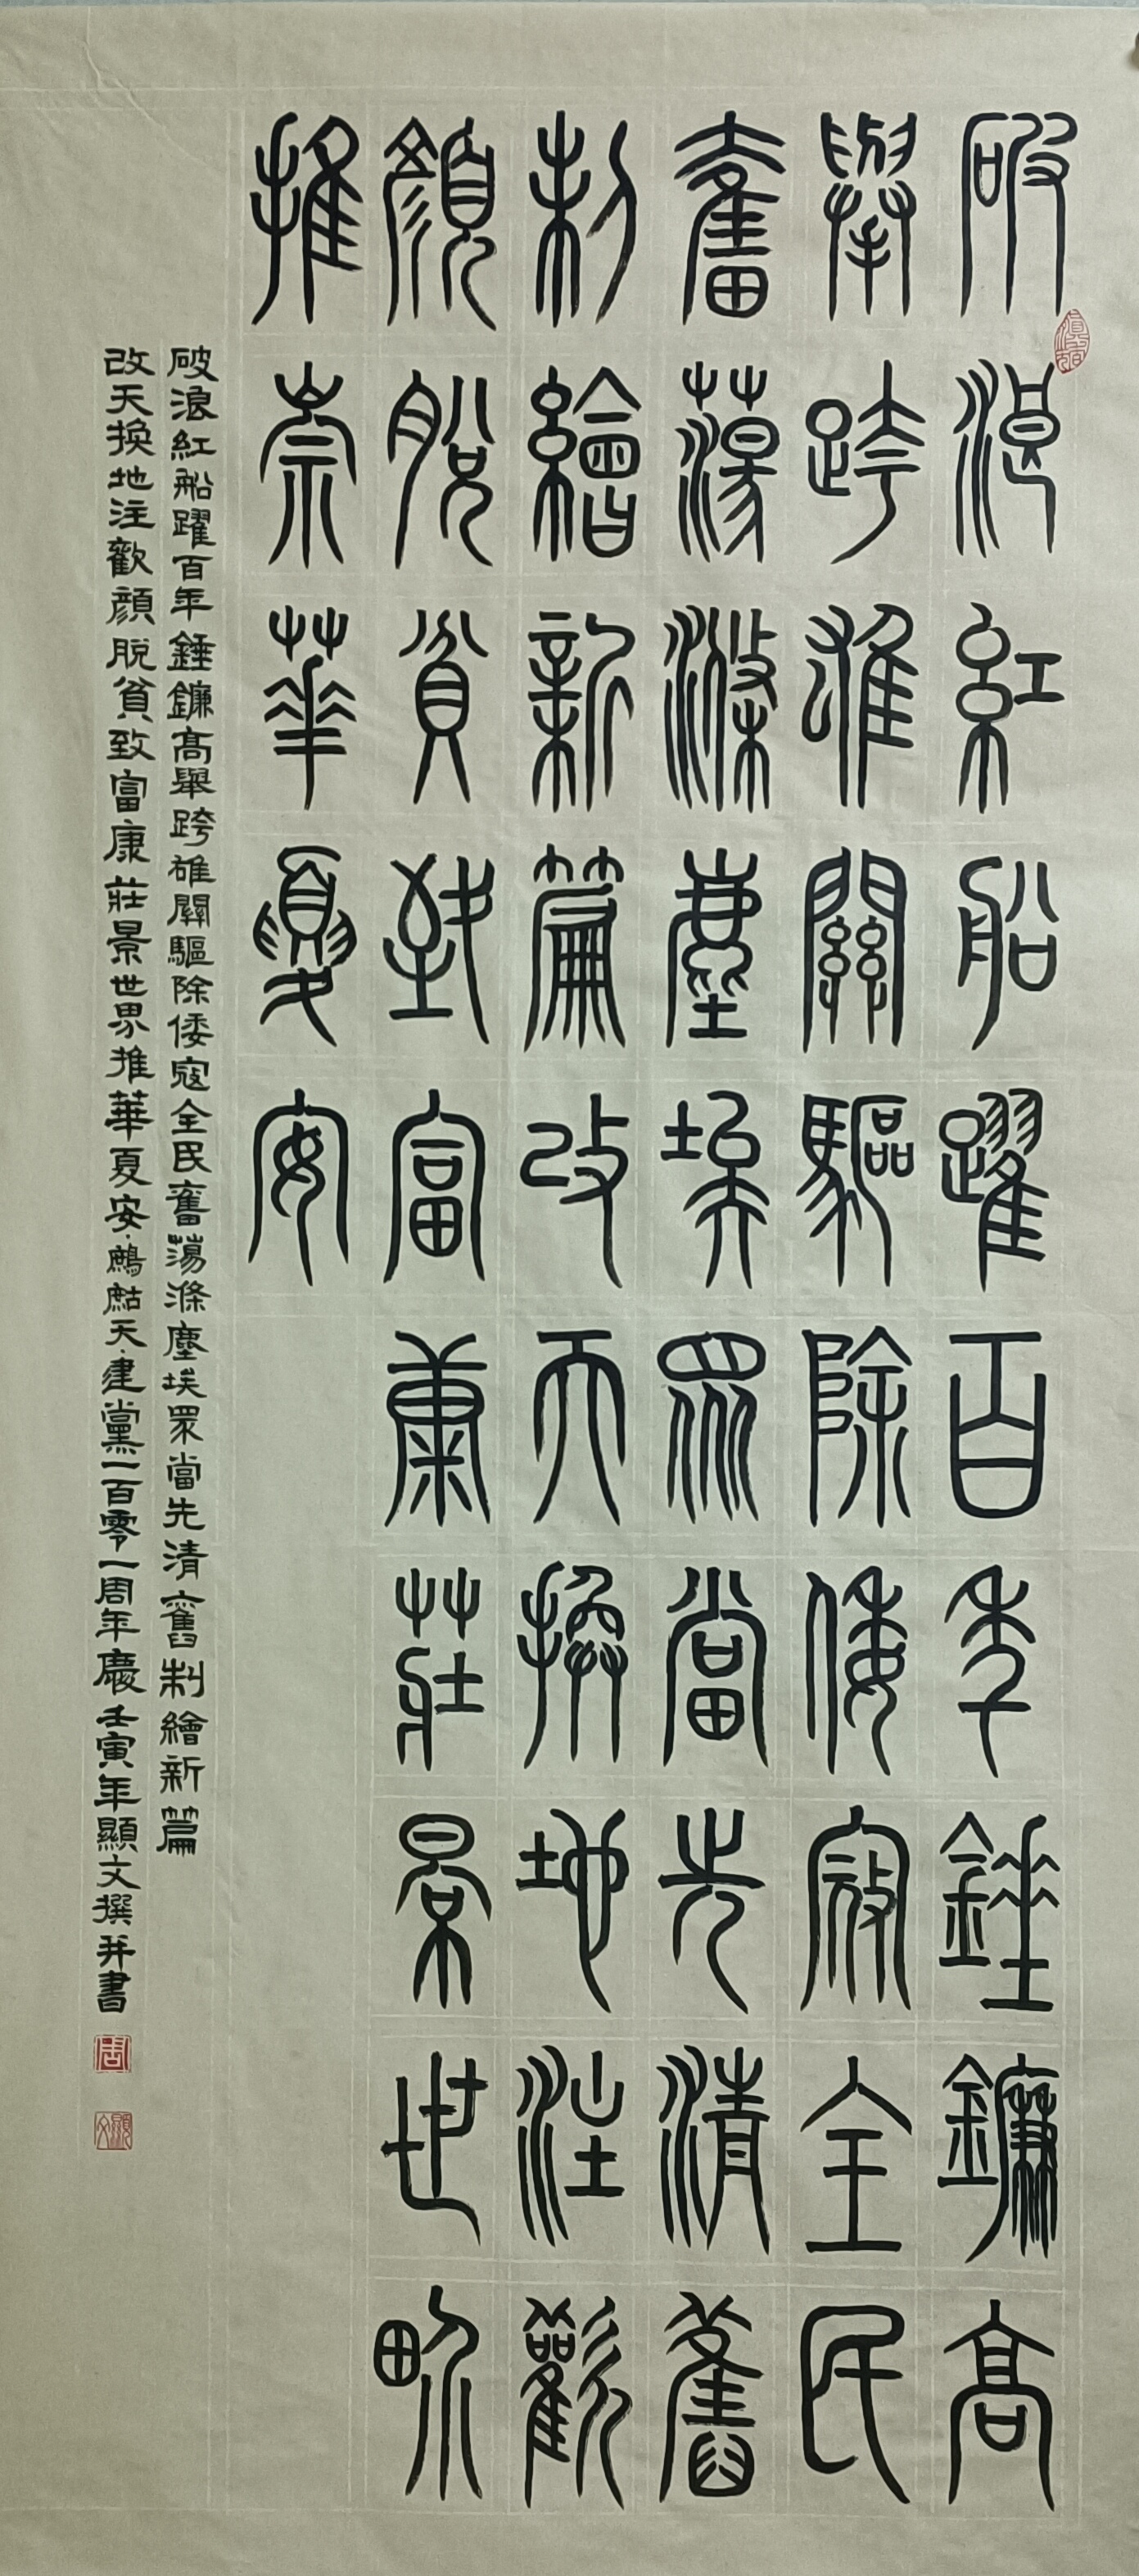 破浪紅船躍百年錘鐮高
舉跨雄關驅除倭寇全民
奮蕩滌塵埃眾當先清舊
制繪新篇改天換地注歡
顏脫貧致富康莊景世界
推崇華夏安
破浪紅船躍百年錘鐮高舉跨雄關驅除倭寇全民奮蕩滌塵埃眾當先清舊制繪新篇
改天換地注歡顏脫貧致富康莊景世界推華夏安·鷓鴣天·建黨一百零一周年慶壬寅年顯文撰并書
周
顯文